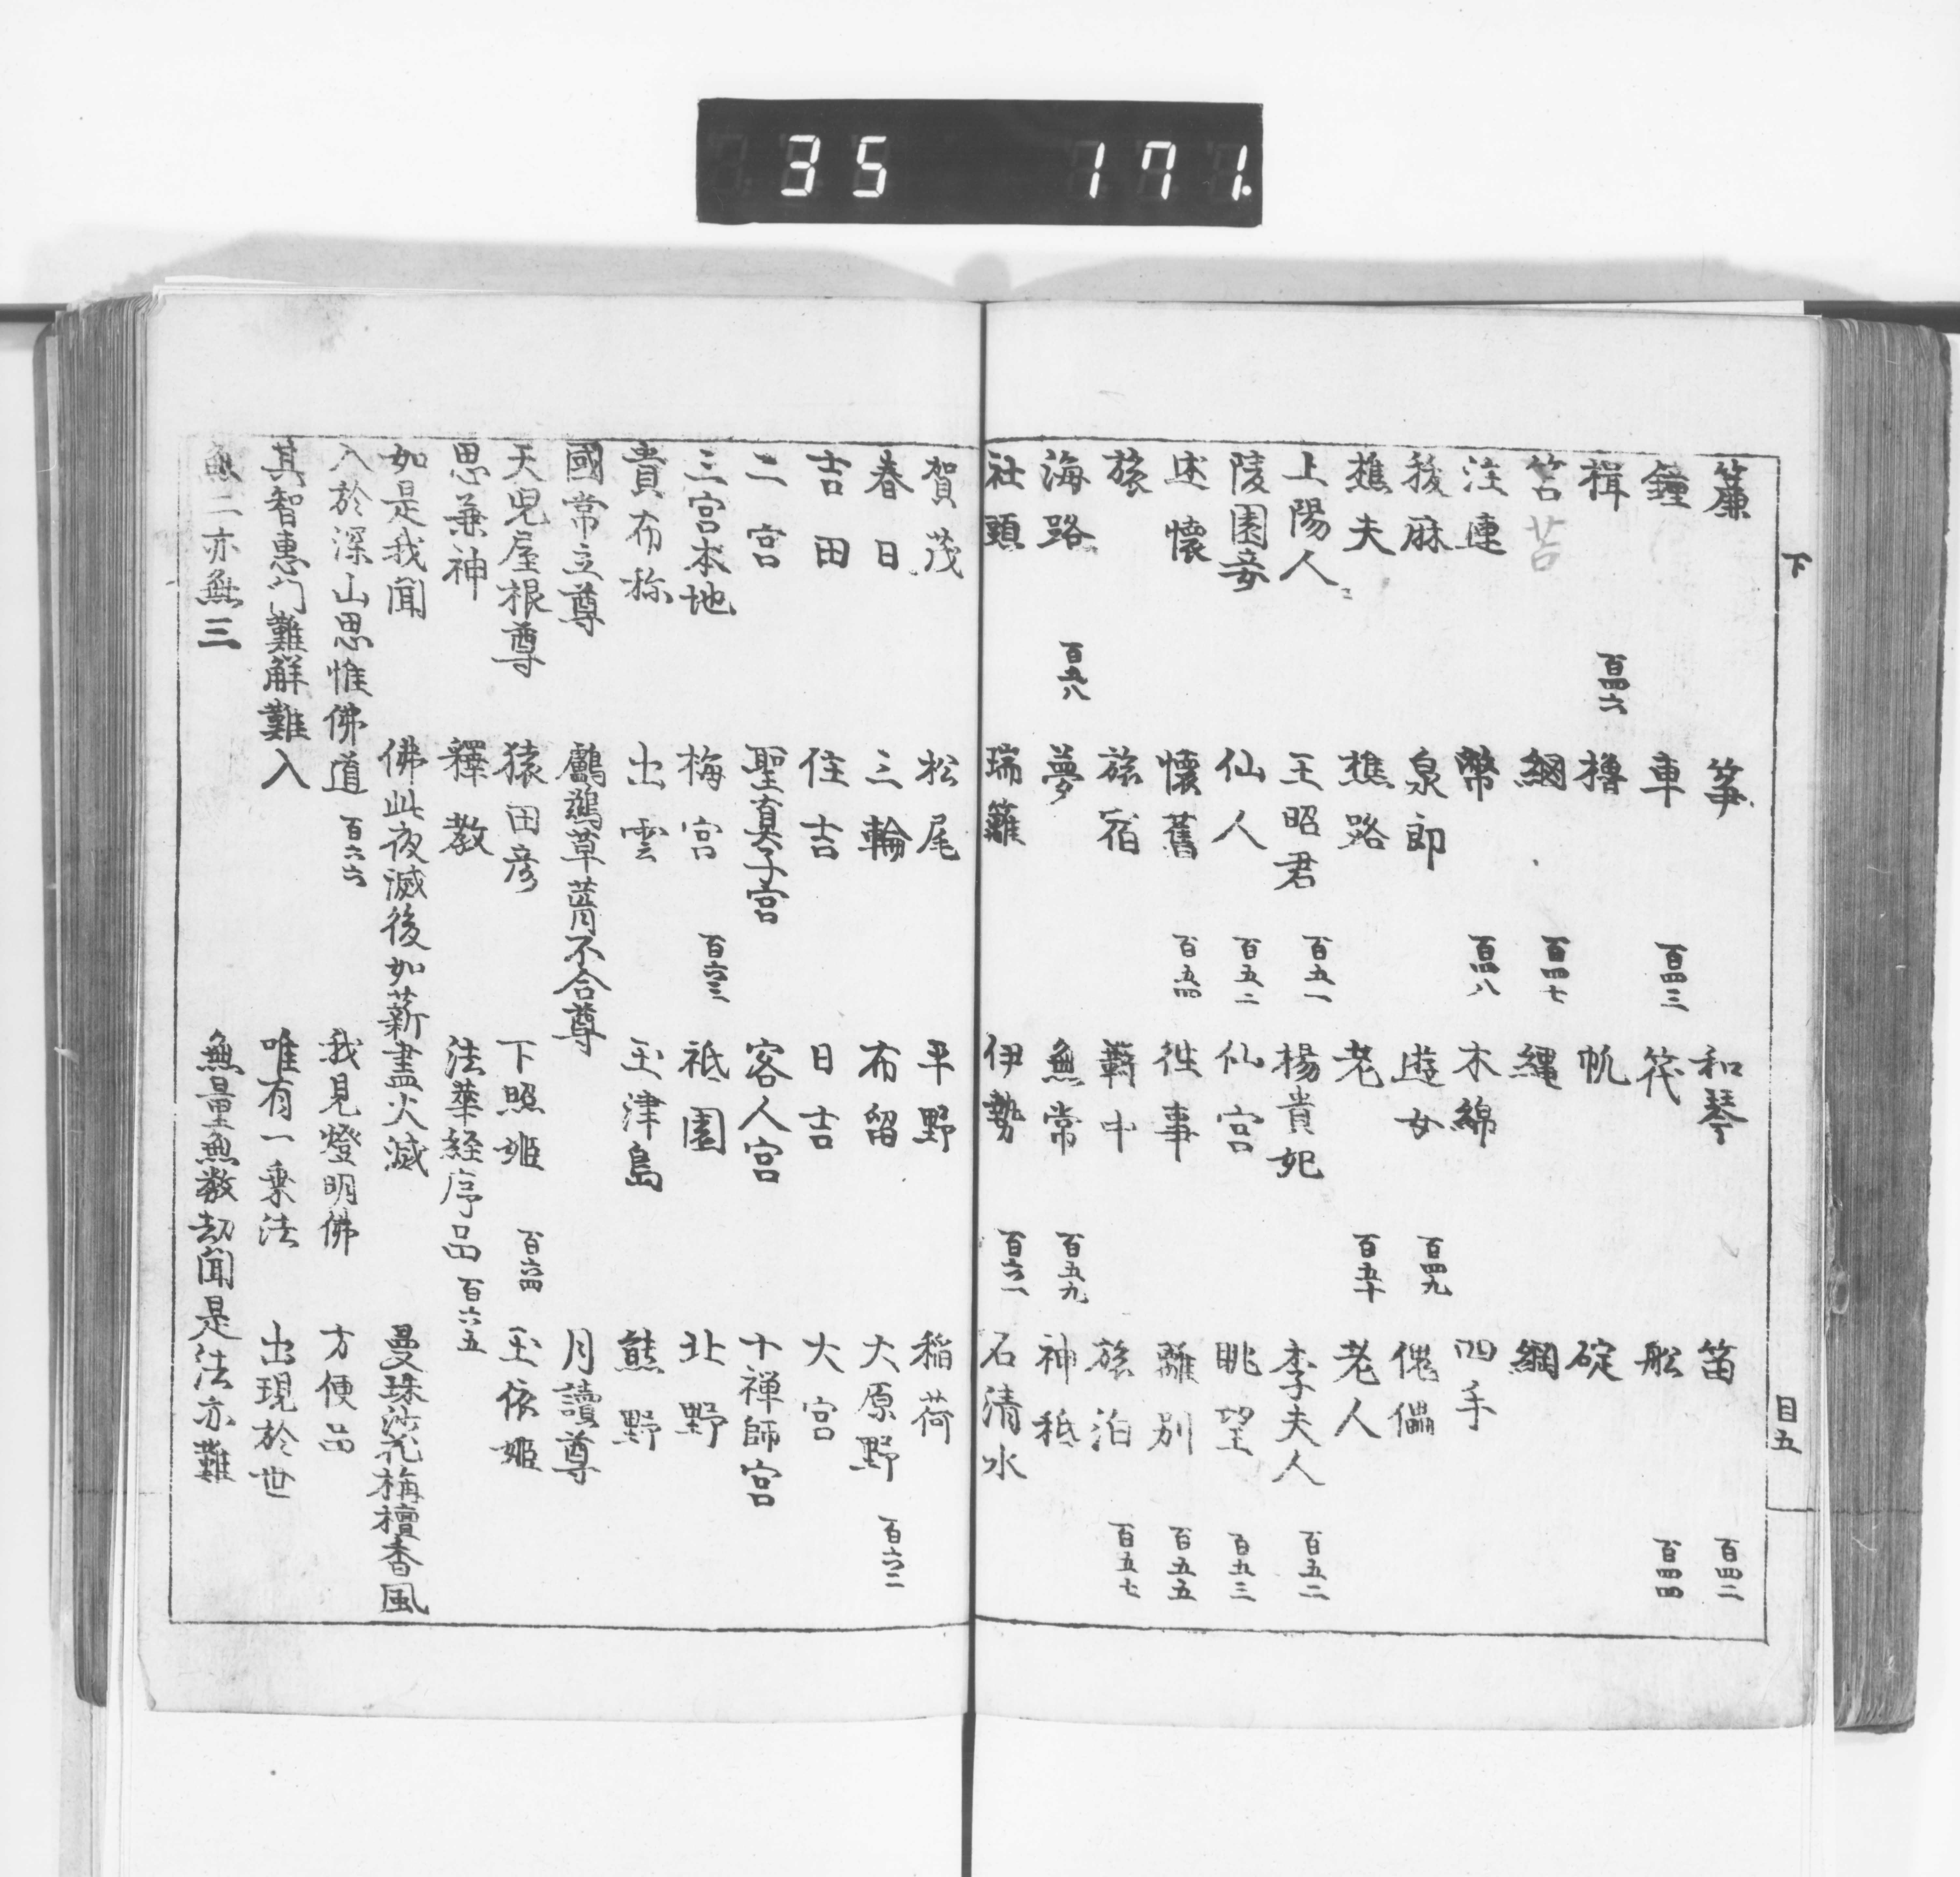 35 171.
下
目五
簾 箏 和琴 笛 百四二
鐘 車 百四三 筏 舩 百四四
楫 百四六 櫓 帆 碇
笘 苫 網 百四七 縄 綱
注連 幣 百四八 木綿 四手
狻麻 泉郎 遊女 百四九 傀儡
樵夫 樵路 老 百五十 老人
上陽人 王昭君 百五一 楊貴妃 李夫人 百五二
陵園妾 仙人 百五二 仙宮 眺望 百五三
述懷 懷舊 百五四 徃事 離別 百五五
旅 旅宿 羇中 旅泊 百五七
海路 百五八 夢 無常 百五九 神祇
社頭 瑞籬 伊勢 百六一 石清水
賀茂 松尾 平野 稲荷
春日 三輪 布留 大原野 百六二
吉田 住吉 日吉 大宮
二宮 聖真子宮 客人宮 十禅師宮
三宮本地 梅宮 百六三 祇園 北野
貴布祢 出雲 玉津島 熊野
國常立尊 鸕鷀草葺不合尊 月讀尊
天児屋根尊 猿田彦 下照姫 百六四 玉依姫
思兼神 釋教 法華経序品 百六五
如是我聞 佛此夜滅後如薪盡火滅 曼珠沙花栴檀香風
入於深山思惟佛道 百六六 我見燈明佛 方便品
其智惠門難解難入 唯有一乗法 出現於世
無二亦無三 無量無数劫聞是法亦難